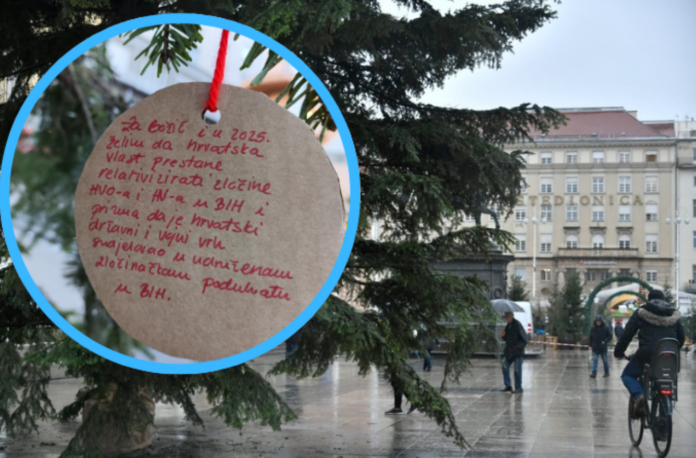 Za Božić i u 2025.
želim da hrvatska
vlast prestane
relativizirati zločine
HVO-a i HV-a u BIH i
prizna da je hrvatski
državni i vojni vrh
sudjelovao u udruženom
zločinačkom pothvatu
u BIH.
ŠTEDIONICA